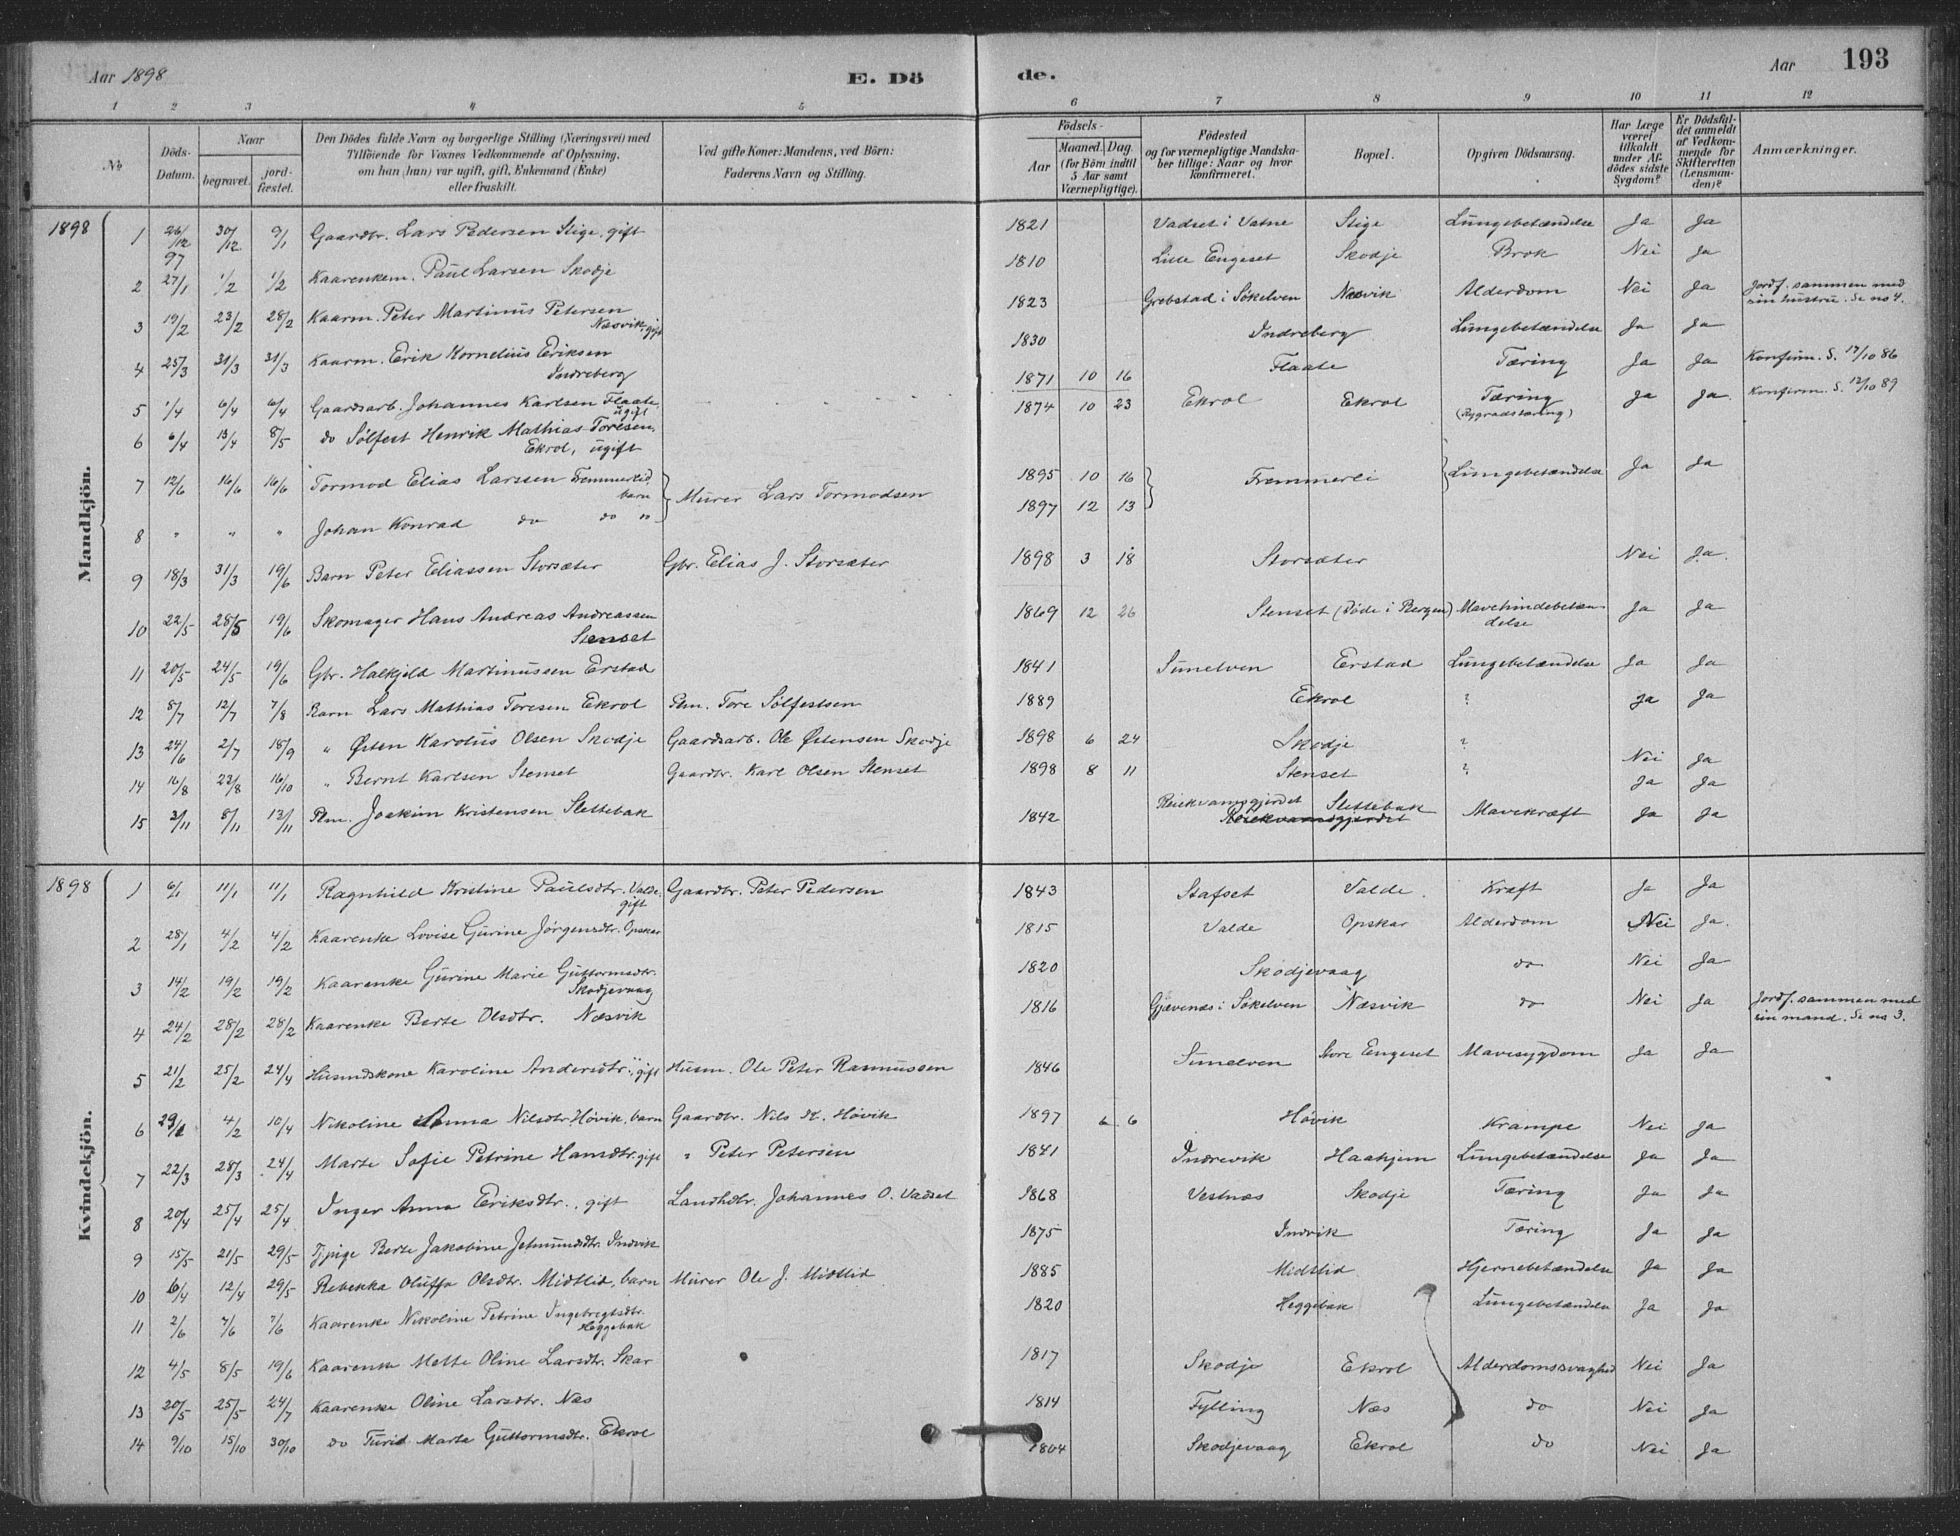 Aar 1898 E. Dö de. Aar 193
1 2 3 4 5 6 7 8 9 10 11 12
No Döds-Datum. Naar begravet. jordfæstet. Den Dödes fulde Navn og borgerlige Stilling (Næringsvei) med Tilföiende for Voxnes Vedkommende af Oplysning, om han (hun) var ugift, gift, Enkemand (Enke) eller fraskilt. Ved gifte Koner: Mandens, ved Börn: Faderens Navn og Stilling. Födsels- Aar Maaned. Dag. (for Börn indtil 5 Aar samt Værnepligtige). Födested og for værnepligtige Mandskaber tillige: Naar og hvor konfirmeret. Bopæl. Opgiven Dödsaarsag. Har Læge været tilkaldt under Afdödes sidste Sygdom? Er Dödsfaldet anmeldt af Vedkommende for Skifteretten (Lensmanden)? Anmærkninger.
Mandkjön.
1898 1 26/12 97 30/12 9/1 Gaardbr. Lars Pedersen Stige, gift 1821 Vadset i Vatne Stige Lungebetændelse Ja Ja
2 27/1 1/2 1/2 Kaarenkem. Paul Larsen Skodje 1810 Lille Engeset Skodje Brok Nei Ja
3 19/2 23/2 28/2 Kaarm. Peter Martinus Petersen Næsvik, gift 1823 Grebstad i Søkelven Næsvik Alderdom Nei Ja Jordf. sammen med sin hustru. Se no 4.
4 25/3 31/3 31/3 Kaarm. Erik Kornelius Eriksen Indreberg 1830 Indreberg Lungebetændelse Ja Ja
5 1/4 6/4 6/4 Gaardsarb. Johannes Karlsen Flaate, ugift 1871 10 16 Flaate Tæring Ja Ja Konfirm. S. 17/10 86
6 6/4 13/4 8/5 do Sølfest Henrik Mathias Toresen, Ekrol, ugift 1874 10 23 Ekrol Ekrol Tæring (Rygradstæring) Ja Ja. Konfirm. S. 12/10 89
7 12/6 16/6 16/6 Tormod Elias Larssen Fremmerlid, barn Murer Lars Tormodsen 1895 10 16 Fremmerli Lungebetændelse Ja Ja
8 " " " Johan Konrad do do " 1897 12 13
9 18/3 31/3 19/6 Barn Peter Eliassen Storsæter Gbr. Elias J. Storsæter 1898 3 18 Storsæter Nei Ja.
10 22/5 28/5 19/6 Skomager Hans Andreas Andreassen Stenset 1869 12 26 Stenset (Døde i Bergen) Mavehindebetændelse Ja Ja
11 20/5 24/5 19/6 Gbr. Halkjeld Martinussen Erstad 1841 Sunelven Erstad Lungebetændelse Ja Ja
12 8/7 12/7 7/8 Barn Lars Mathias Toresen Ekrol Plm. Tore Sølfestsen 1889 Ekrol ? Ja Ja
13 24/6 2/7 18/9 " Østen Karolus Olsen Skodje Gaardsarb. Ole Østensen Skodje 1898 6 24 Skodje ? Nei Ja
14 16/8 22/8 16/10 " Bernt Karlsen Stenset Gaardbr. Karl Olsen Stenset 1898 8 11 Stenset ? Ja Ja
15 3/11 8/11 13/11 Plm. Joakim Kristensen Slettebak 1842 Reiekvamsgjerdet Slettebak Reiekvamsgjerdet Mavekræft Ja Ja
Kvindekjön.
1898 1 6/1 11/1 11/1 Ragnhild Kristine Paulsdtr. Valde, gift Gaardbr. Peter Pedersen 1843 Stafset Valde Kræft Ja Ja
2 28/1 4/2 4/2 Kaarenke Lovise Gurine Jørgensdtr. Opskar 1815 Valde Opskar Alderdom Nei Ja.
3 14/2 19/2 19/2 Kaarenke Gurine Marie Guttormsdtr. Skodjevaag 1820 Skodjevaag do Nei Ja
4 24/2 28/2 28/2 Kaarenke Berte Olsdtr. Næsvik 1816 Gjævenes i Søkelven Næsvik do Nei Ja Jordf. sammen med sin mand. Se no 3.
5 21/2 25/2 24/4 Husmdskone Karoline Andersdtr., gift Husm. Ole Peter Rasmussen 1846 Sunelven Store Engeset Mavesygdom Ja Ja
6 29/1 4/2 10/4 Nikoline Anna Nilsdtr Høvik, barn Gaardbr. Nils K. Høvik 1897 6 6 Høvik Krampe Nei Ja
7 22/3 28/3 24/4 Marte Sofie Petrine Hansdtr. gift " Peter Petersen 1841 Indrevik Haahjem Lungebetændelse Ja Ja
8 20/4 25/4 25/4 Inger Anna Eriksdtr., gift Landhdlr. Johannes O. Vadset 1868 Vestnæs Skodje Tæring Ja Ja
9 15/5 21/5 29/5 Pige Berte Jakobine Jetmundsdtr. Indvik 1875 Indvik Tæring Ja Ja
10 6/4 12/4 29/5 Rebekka Oluffa Olsdtr. Midtlid, barn Murer Ole J. Midtlid 1885 Midtlid Hjernebetændelse Ja Ja
11 2/6 7/6 7/6 Kaarenke Nikoline Petrine Ingebregtsdtr. Heggebak 1820 Heggebak Lungebetændelse Ja Ja
12 4/5 8/5 19/6 Kaarenke Mette Oline Larsdtr. Skar 1817 Skodje Ekrol Alderdomssvaghed Nei Ja
13 20/5 25/5 24/7 Kaarenke Oline Larsdtr. Næs 1814 Fylling Næs do Nei Ja
14 9/10 15/10 30/10 do Turid Marta Guttormsdtr. Ekrol 1804 Skodjevaag Ekrol do Nei Ja